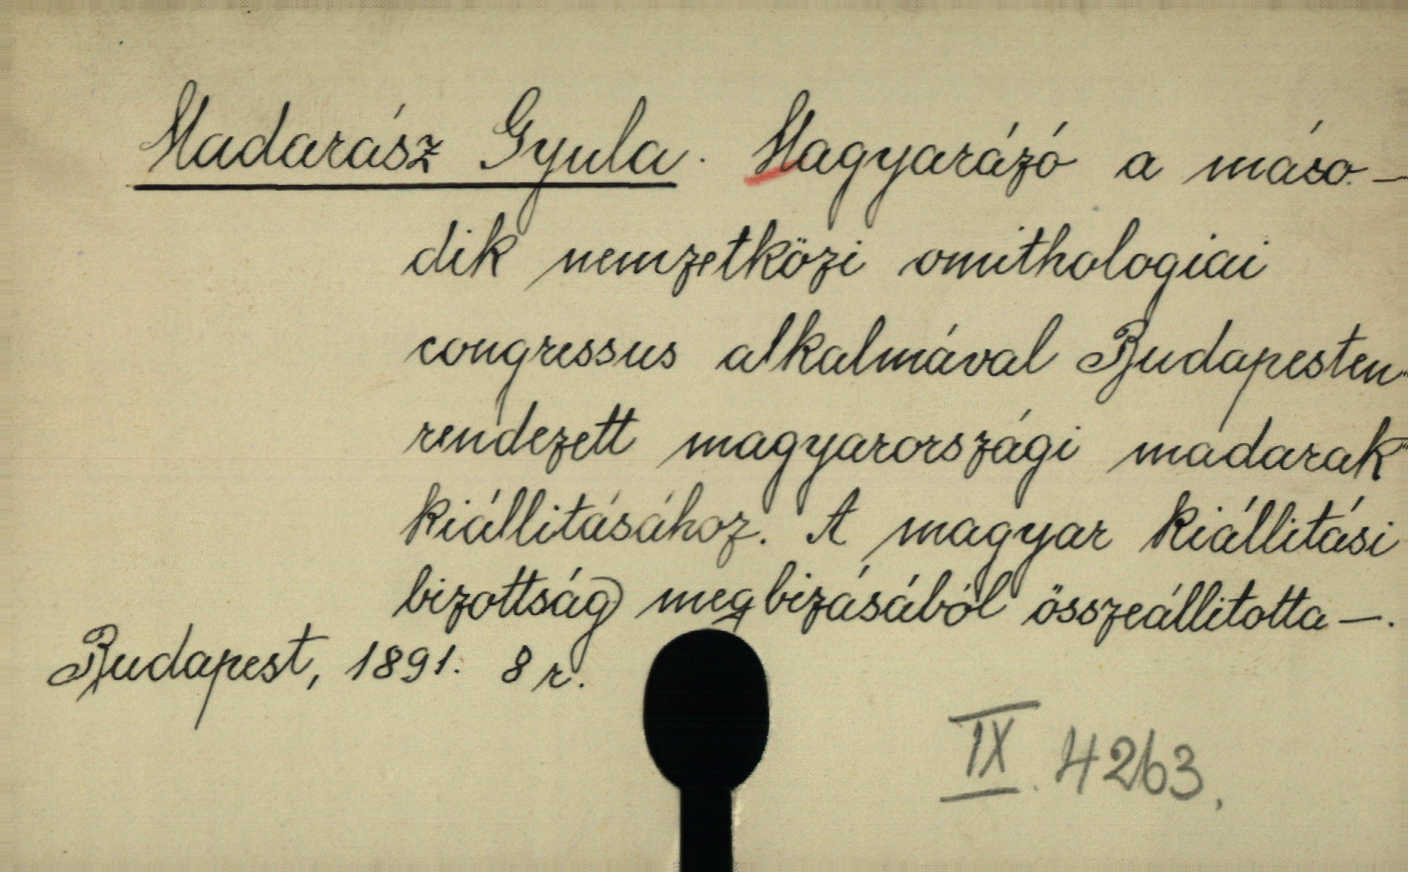 Madarász Gyula. Magyarázó a máso-
dik nemzetközi ornithologiai
congressus alkalmával Budapesten
rendezett magyarországi madarak
kiállitásához. A magyar kiállitási
bizottság megbizásából összeállitotta —.
Budapest, 1891. 8 r.
IX. 4263.